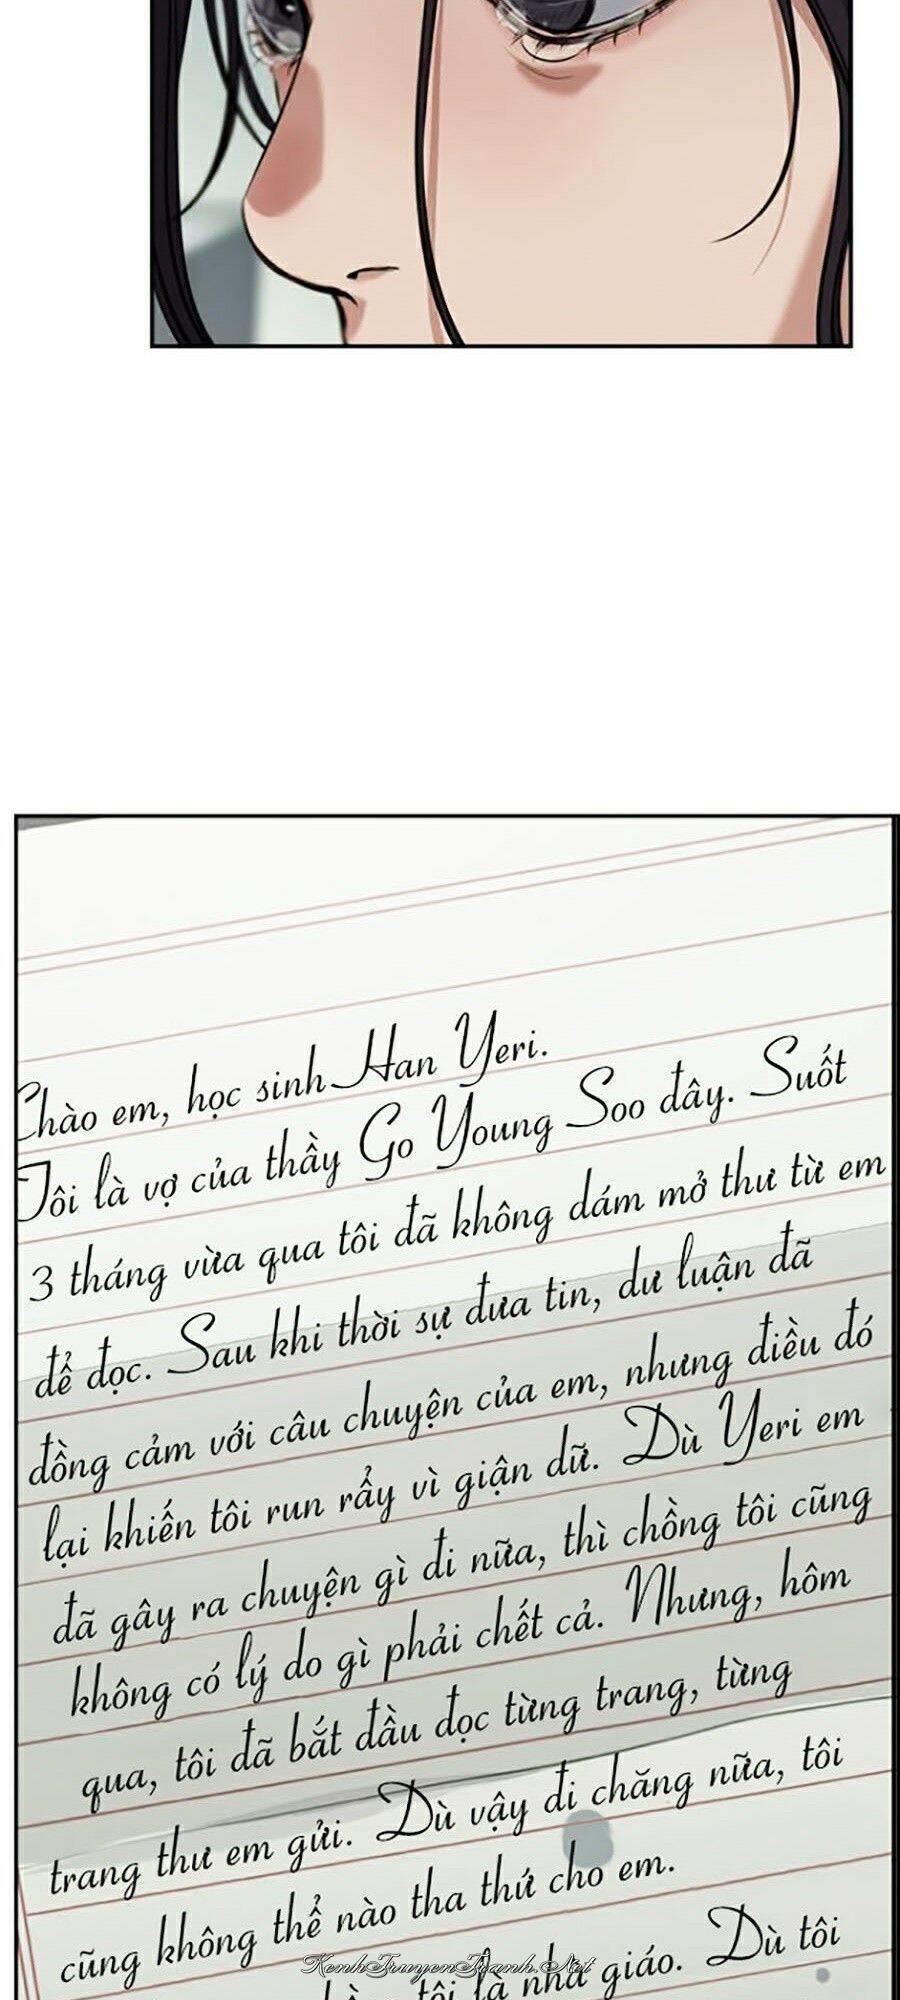 Chào em, học sinh Han Yeri.
Tôi là vợ của thầy Go Young Soo đây. Suốt
3 tháng vừa qua tôi đã không dám mở thư từ em
để đọc. Sau khi thời sự đưa tin, dư luận đã
đồng cảm với câu chuyện của em, nhưng điều đó
lại khiến tôi run rẩy vì giận dữ. Dù Yeri em
đã gây ra chuyện gì đi nữa, thì chồng tôi cũng
không có lý do gì phải chết cả. Nhưng, hôm
qua, tôi đã bắt đầu đọc từng trang, từng
trang thư em gửi. Dù vậy đi chăng nữa, tôi
cũng không thể nào tha thứ cho em.
tôi là nhà giáo. Dù tôi
KenhTruyenTranh.Net